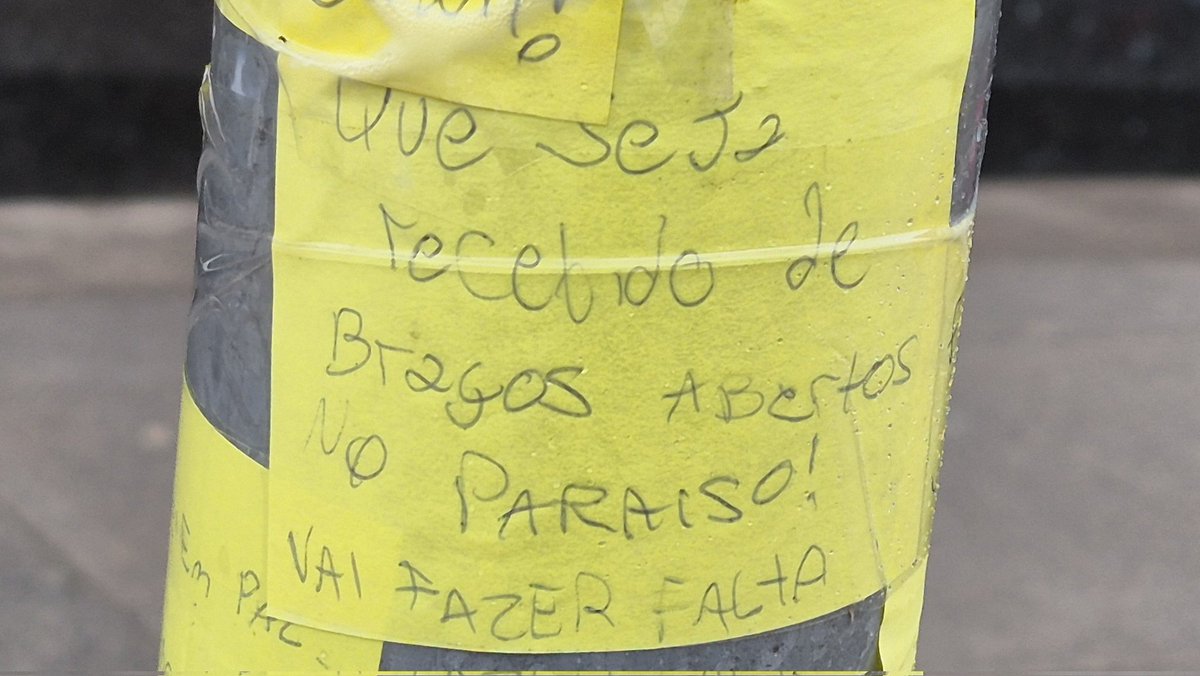 Que seja
recebido de
Braços Abertos
No PARAISO!
VAI FAZER FALTA
Em PAZ